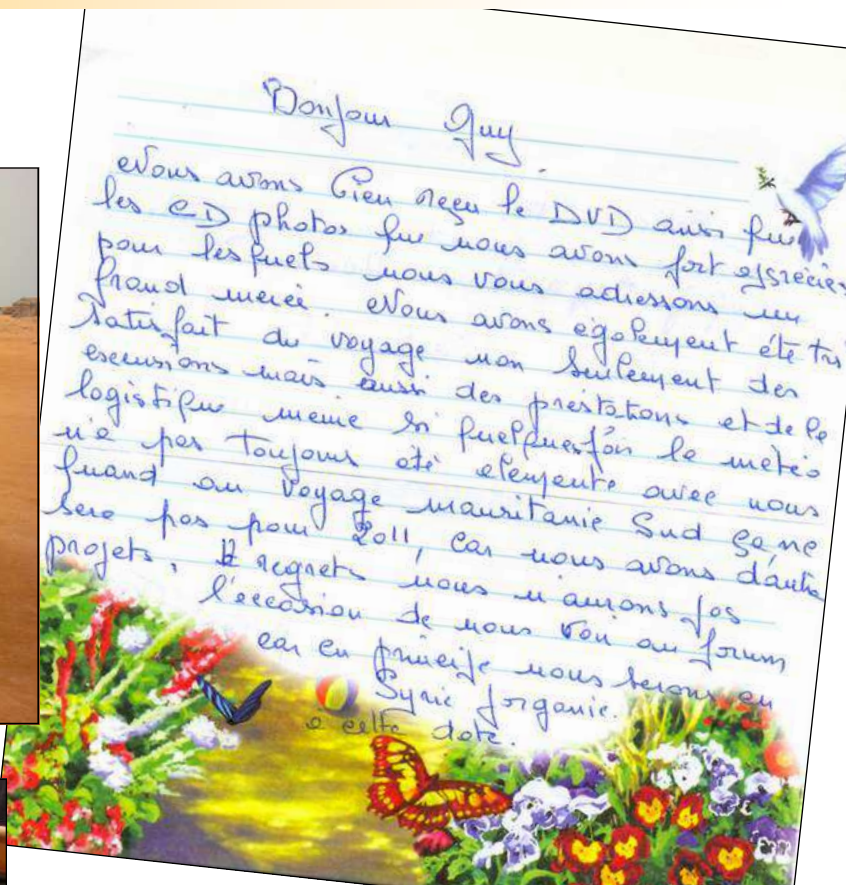 Bonjour Guy
Nous avons bien reçu le DVD ainsi que
les CD photos que nous avons fort appréciés
pour lesquels nous vous adressons un
grand merci. Nous avons également été très
satisfait du voyage non seulement des
excursions mais aussi des prestations et de la
logistique meme si quelquesfois la météo
n'a pas toujours été clemente avec nous
quand au voyage mauritanie Sud ça ne
sera pas pour 2011, car nous avons d'autre
projets, regrets nous n'aurons pas
l'occasion de nous voir au forum
car en principe nous serons en
Syrie
a cette date.